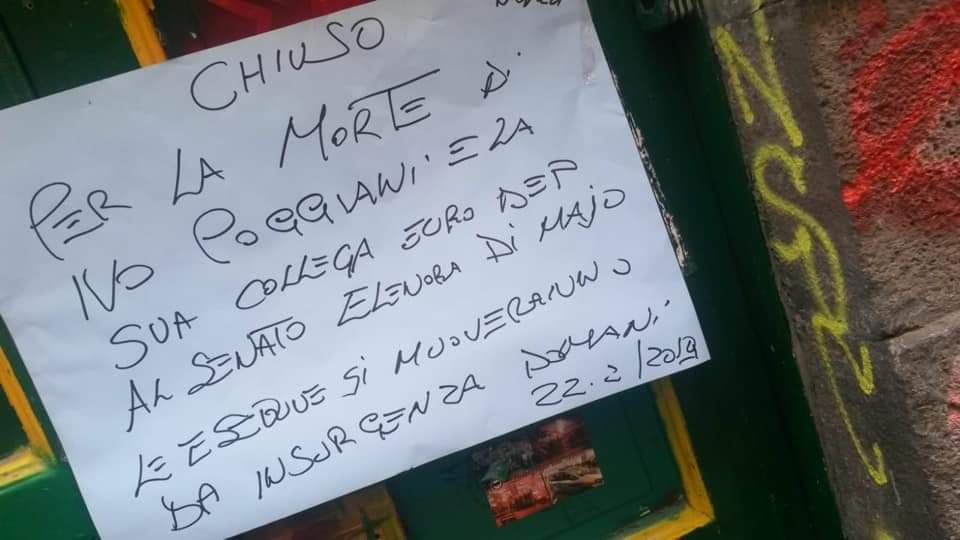 CHIUSO
PER LA MORTE Di
IVO POGGIANi E LA
SUA COLLEGA EURO DEP
AL SENATO ELENORA Di MAJO
LE ESEQUE Si MUOVERAUNNO
DA INSURGENZA DOMANi
22.2/2019